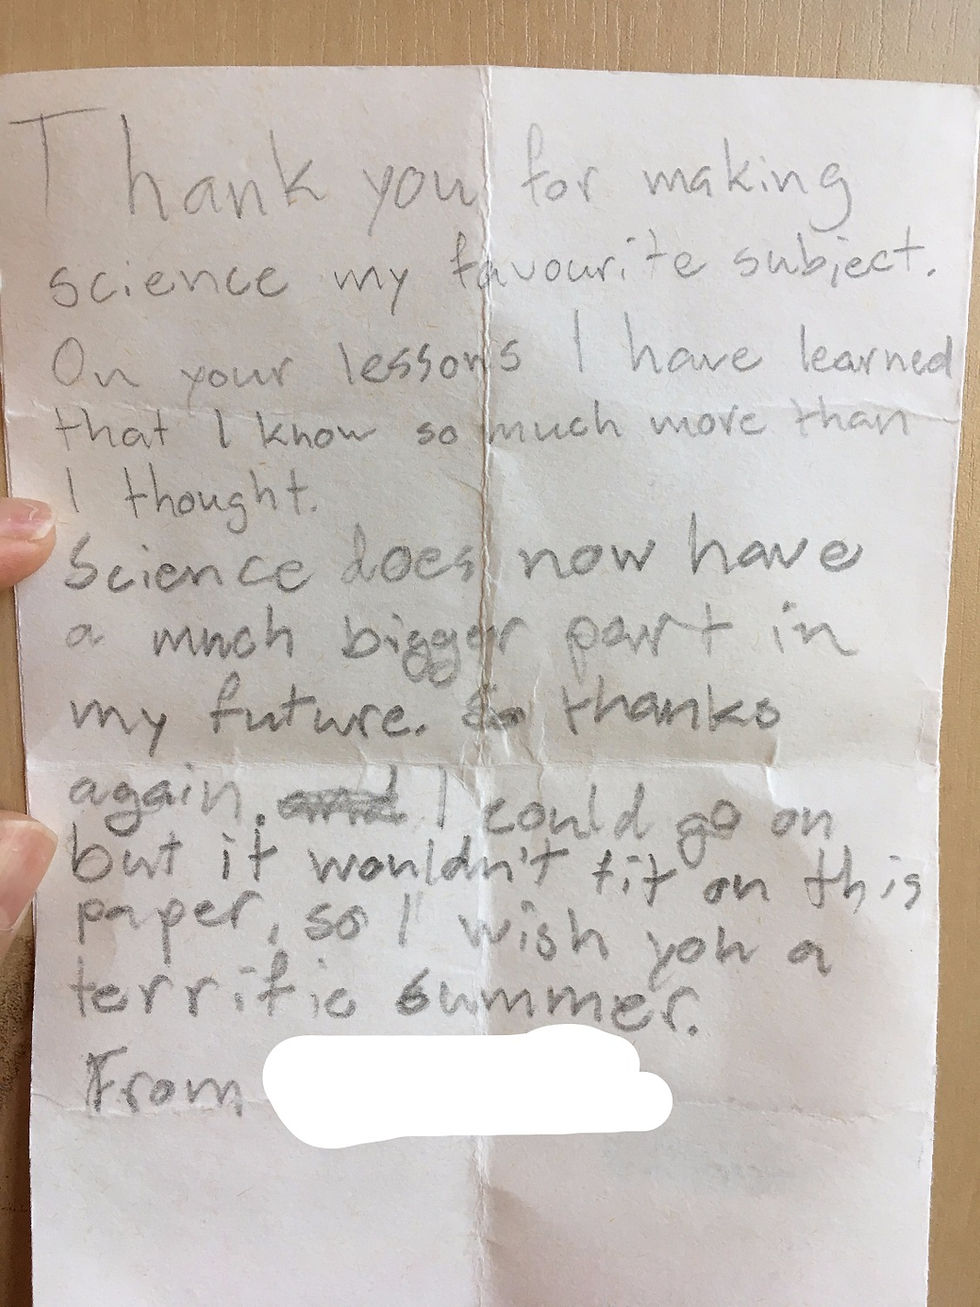 Thank you for making
science my favourite subject.
On your lessons I have learned
that I know so much more than
I thought.
Science does now have
a much bigger part in
my future. So thanks
again. and I could go on
but it wouldn't fit on this
paper, so I wish you a
terrific summer.
From